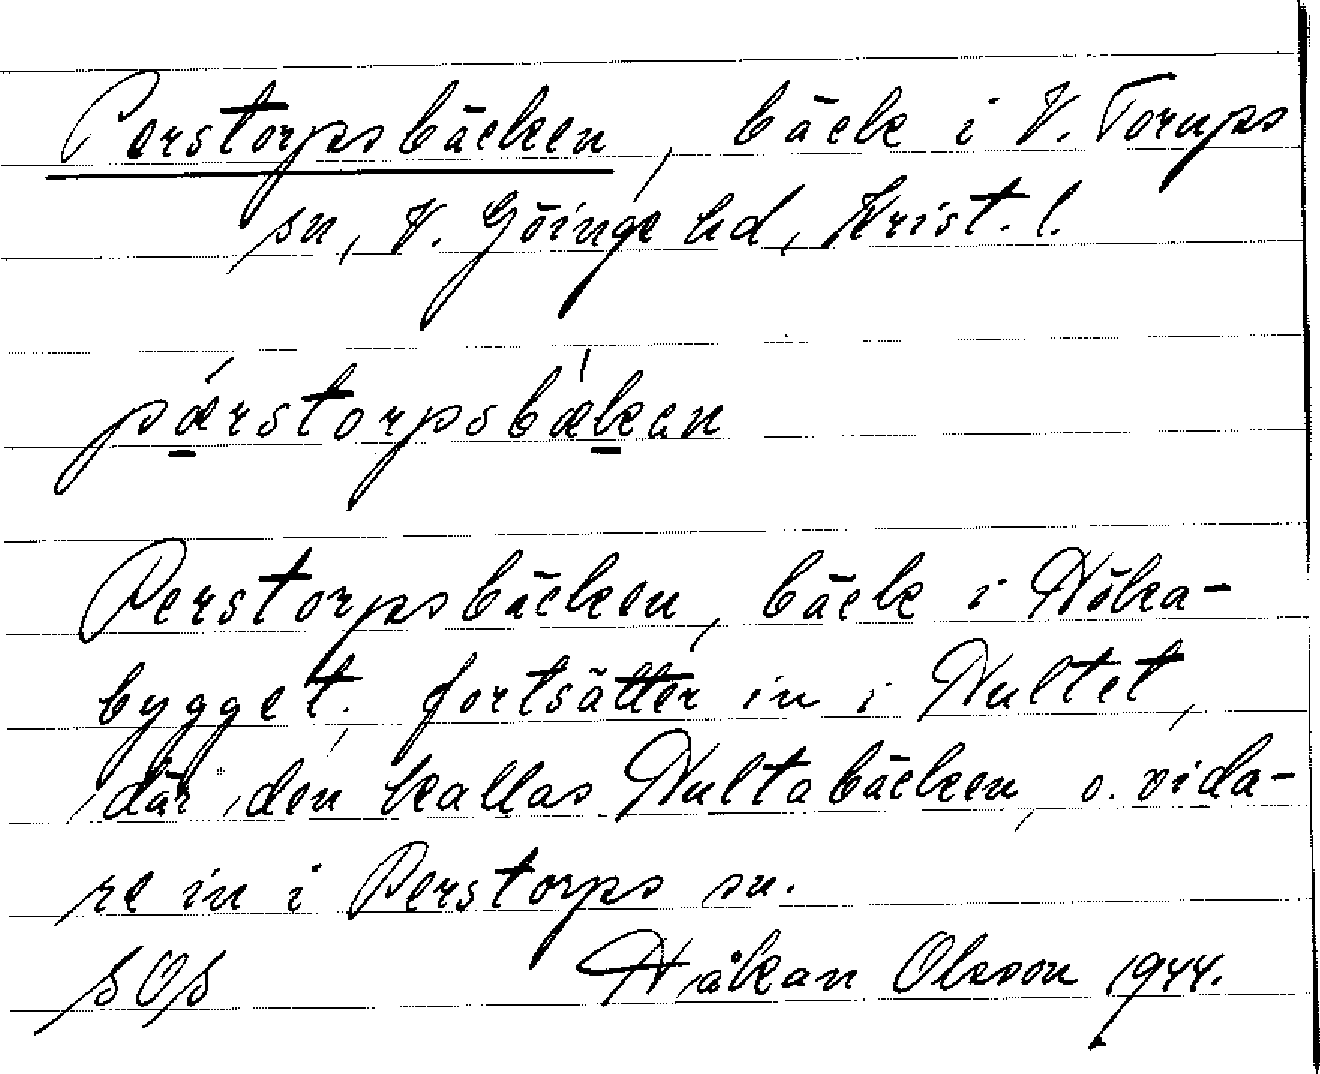 Perstorpsbäcken, bäck i V. Torups
sn, V. Göinge hd, Krist. l.
pærstorpsbækan
Perstorpsbäcken, bäck i Höka-
bygget, fortsätter in i Hultet,
där den kallas Hultabäcken, o. vida-
re in i Perstorps sn.
SOS Håkan Olsson 1944.